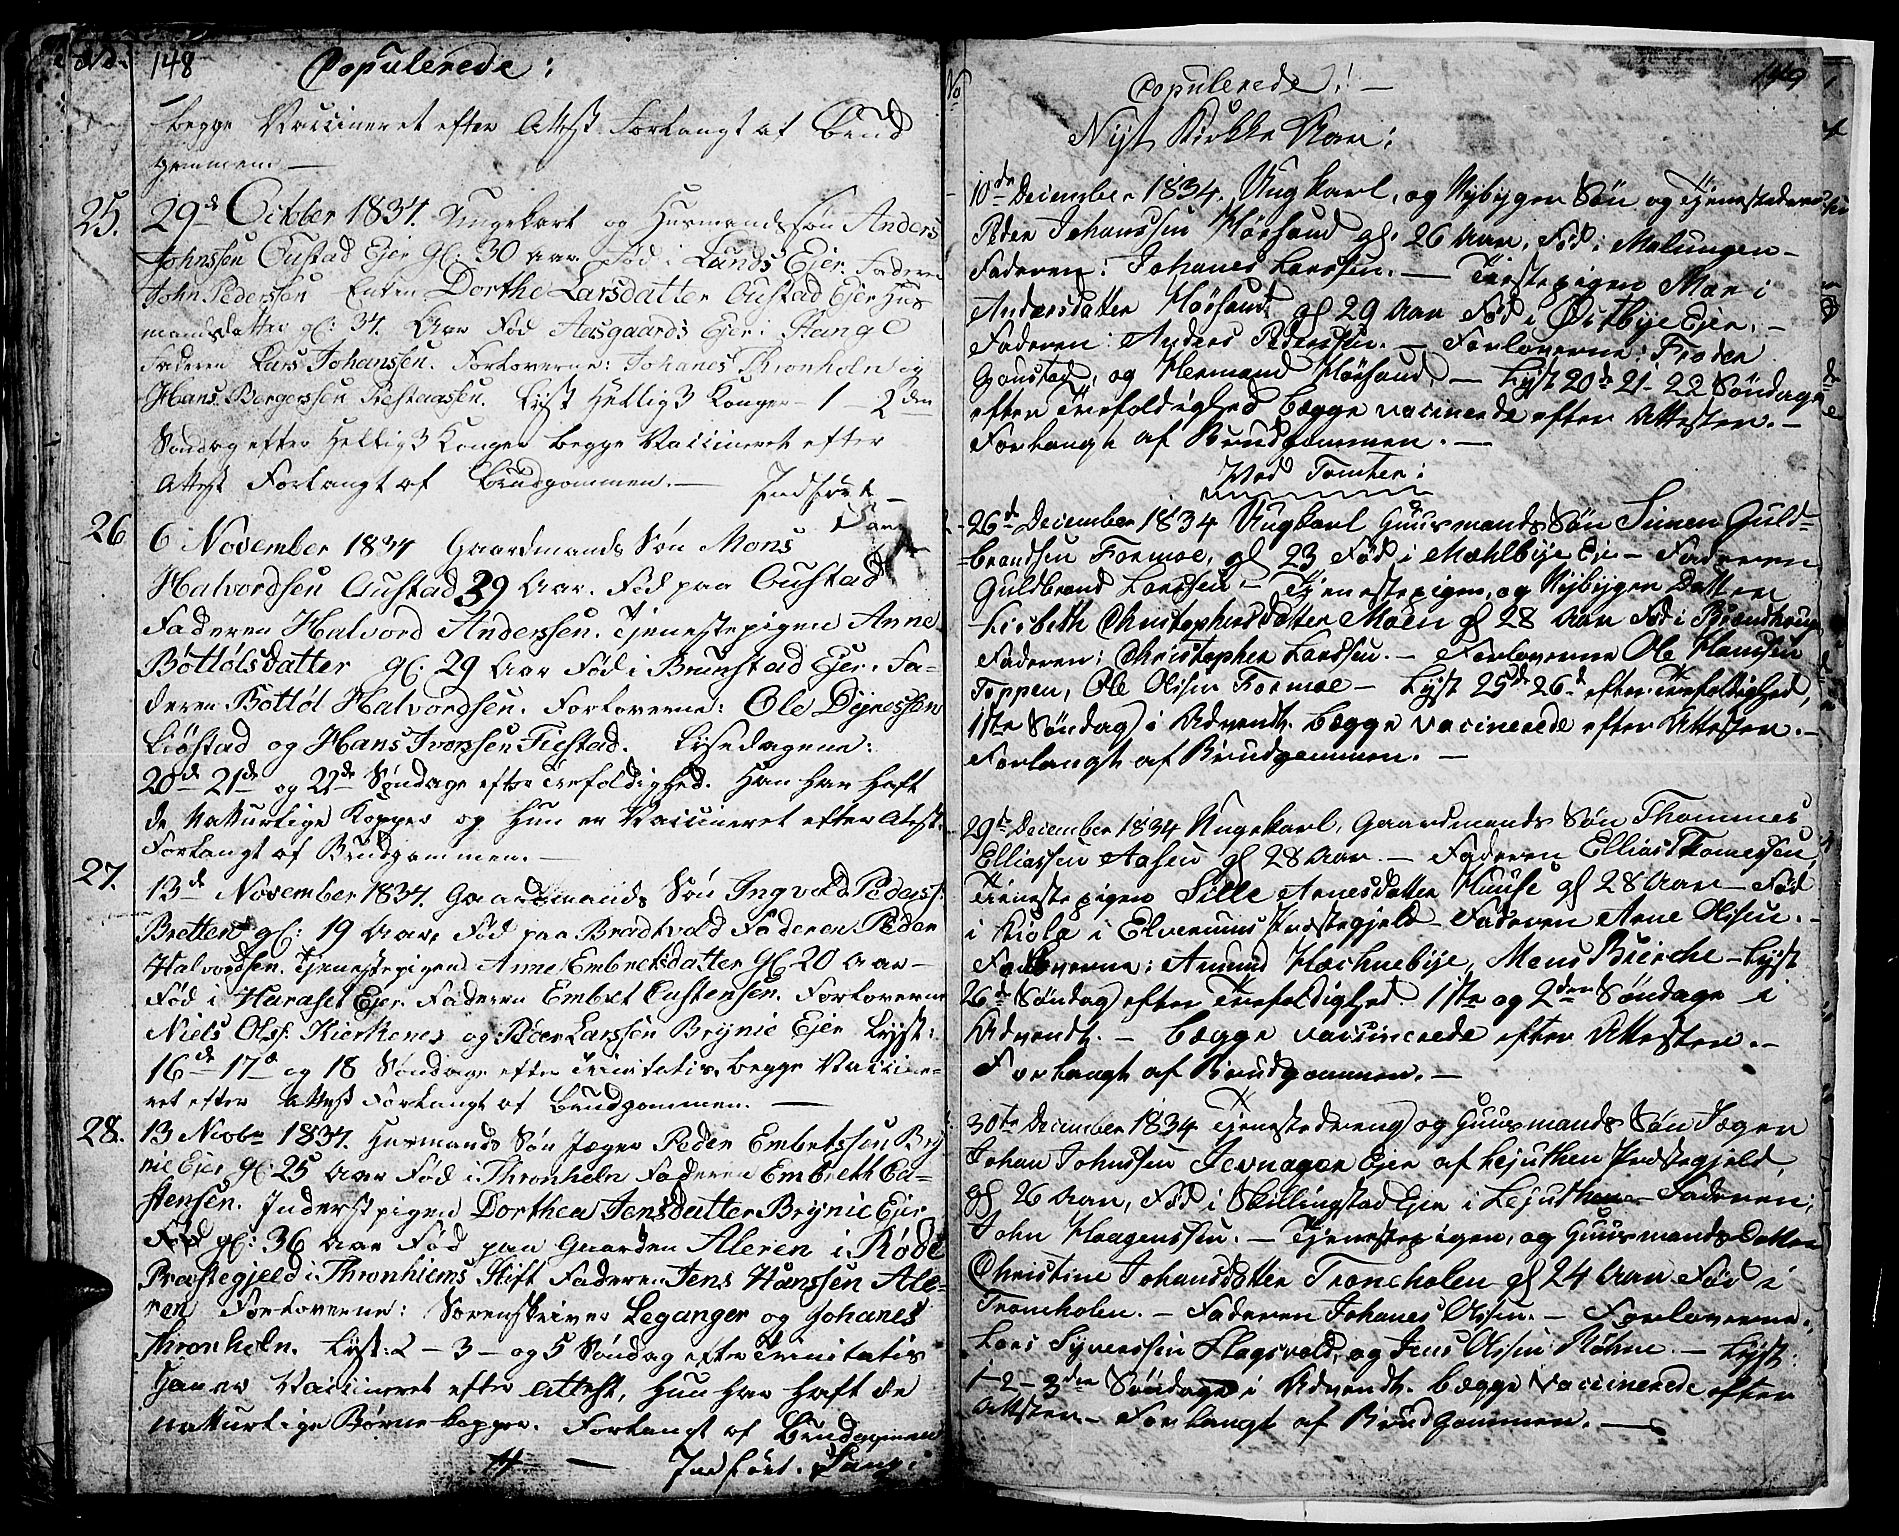 No. 148 Copulerede:
begge Vaccineret efter Attest Forlangt af Brud
gommen. —
25. 29d October 1834. Ungekarl og Husmandssøn Anders
Johnssen Oustad Ejer gl: 30 Aar Fød i Lunds Ejer. Faderen
John Pederssen Enken Dorthe Larsdatter Oustad Ejer Hus
mandsdatter gl: 34. Aar Fød Aasgaards Ejer i Stange
Faderen Lars Johansen. Forloverne: Johanes Thronholn og
Hans Bergerssen. Lyst Hellig 3 Konger - 1 - 2den
Søndag efter Hellig 3 Konger begge Vaccineret efter
Attest Forlangt af Brudgommen. — Indført —
Lang
26 6 November 1834 Gaardmands Søn Mons
Halvordsen Oustad 39 Aar. Fød paa Oustad
Faderen Halvord Anderssen. Tjenestepigen Anne
Bøttølsdatter gl: 29 Aar Fød i Brunstad Ejer. Fa-
deren Bottøl Halvordsen. Forloverne: Ole Dejnessen
Liøstad og Hans Ivorssen Fiestad. Lysedagene:
20d 21de og 22de Søndage efter Trefoldighed. Han har haft
de Naturlige Kopper og Hun er Vaccineret efter Attest.
Forlangt af Brudgommen. —
27. 13d November 1834. Gaardmands Søn Ingvold Pederss:
Bretten gl: 19 Aar, Fød paa Bradtvold Faderen Peder
Halvordsen. Tjenestepigen Anne Embretsdatter gl 20 Aar —
Fød i Haraset Ejer. Faderen Embret Oustensen. Forloverne
Niels Olss: Kierkenes og Peder Larssen Brynie Ejer Lyst:
16d 17d og 18 Søndage efter Trinitatis. begge Vaccine-
ret efter Attest Forlangt af Brudgommen. —
28. 13 Novbr 1834. Husmands Søn Jæger Peder Embretssen Bry
nie Ejer gl: 25 Aar Fød i Thronholn Faderen Embreth Ou-
stensen. Inderstpigen Dorthea Jensdatter Brynie Ejer
Fød gl: 36 Aar Fød paa Gaarden Aleren i Røde
Præstegjeld i Thronhiems Stift Faderen Jens Hanssen Ale-
ren Forloverne: Sorenskriver Leganger og Johanes
Thronholn. Lyst: 2 - 3 - og 5 Søndag efter Trinitatis
Han er Vaccineret efter Attest, Hun har haft de
Naturlige Børne Kopper. Forlangt af Brudgommen
— Indført. Lang:
No Copulerede! — 149
Nyt Kirkke Aar:
10de December 1834. Ungkarl, og Nybygger Søn og Tjenestedreng
Peder Johanssen Hørsand gl: 26 Aar, Fød i Malungen —
Faderen: Johanes Larssen. — Tienestepigen Mari
Andersdatter Hørsand gl 29 Aar Fød i Østbye Ejer. —
Faderen Anders Pederssen. — Forloverne: Froder
Gjoustad, og Hermand Hørsand, — Lyst 20de 21- 22 Søndage
efter Trefoldighed begge vacinerede efter Attester. —
Forlangt af Brudgommen. —
Ved Tomter:
26d December 1834 Ungkarl Huusmands Søn Simen Guld=
=brandsen Formoe, gl 23 Fød i Mæhlbye Eje — Faderen
Guldbrand Larssen — Tjenestepigen, og Nybygger Datter
Lisbeth Christophersdatter Moen gl 28 Aar Fød i
Faderen: Christopher Larssen. — Forloverne Ole Hanssen
Toppen, Ole Olsen Formoe — Lyst 25de 26d efter Trefoldighed,
1ste Søndag i Advendt. begge vacinerede efter Attester. —
Forlangt af Brudgommen. —
29de December 1834 Ungekarl, Gaardmands Søn Thommes
Elliassen Aasen gl 28 Aar. — Faderen Ellias Thomessen,
Tienestepigen Sille Arnesdatter Huuse gl 28 Aar — Fød
i Kiøla i Elverums Præstegjeld — Faderen Arne Olsen. —
Forloverne: Amund Hachnebye, Mons Bierche — Lyst
26d Søndag efter Trefoldighed 1ste og 2den Søndage i
Advendt. — begge vaccinerede efter Attester. —
Forlangt af Brudgommen. —
30te December 1834 Tjenestedreng og Huusmands Søn Jæger
Johan Johnssen Jevnager Ejer af Lejuthen Præstegjeld,
gl 26 Aar, Fød i Skillingstad Ejer i Lejuthen — Faderen:
John Haagenssen. — Tjenestepigen, og Huusmands Datter
Christine Johansdatter Troneholen gl 24 Aar Fød i
Troneholen. — Faderen Johanes Olsen. — Forloverne.
Lars Syverssen Flagsvold, og Jens Olsen Røhne. — Lyst:
1 - 2 - 3die Søndage i Advendt. begge vaccinerede efter
Attester — Forlangt af Brudgommen. —